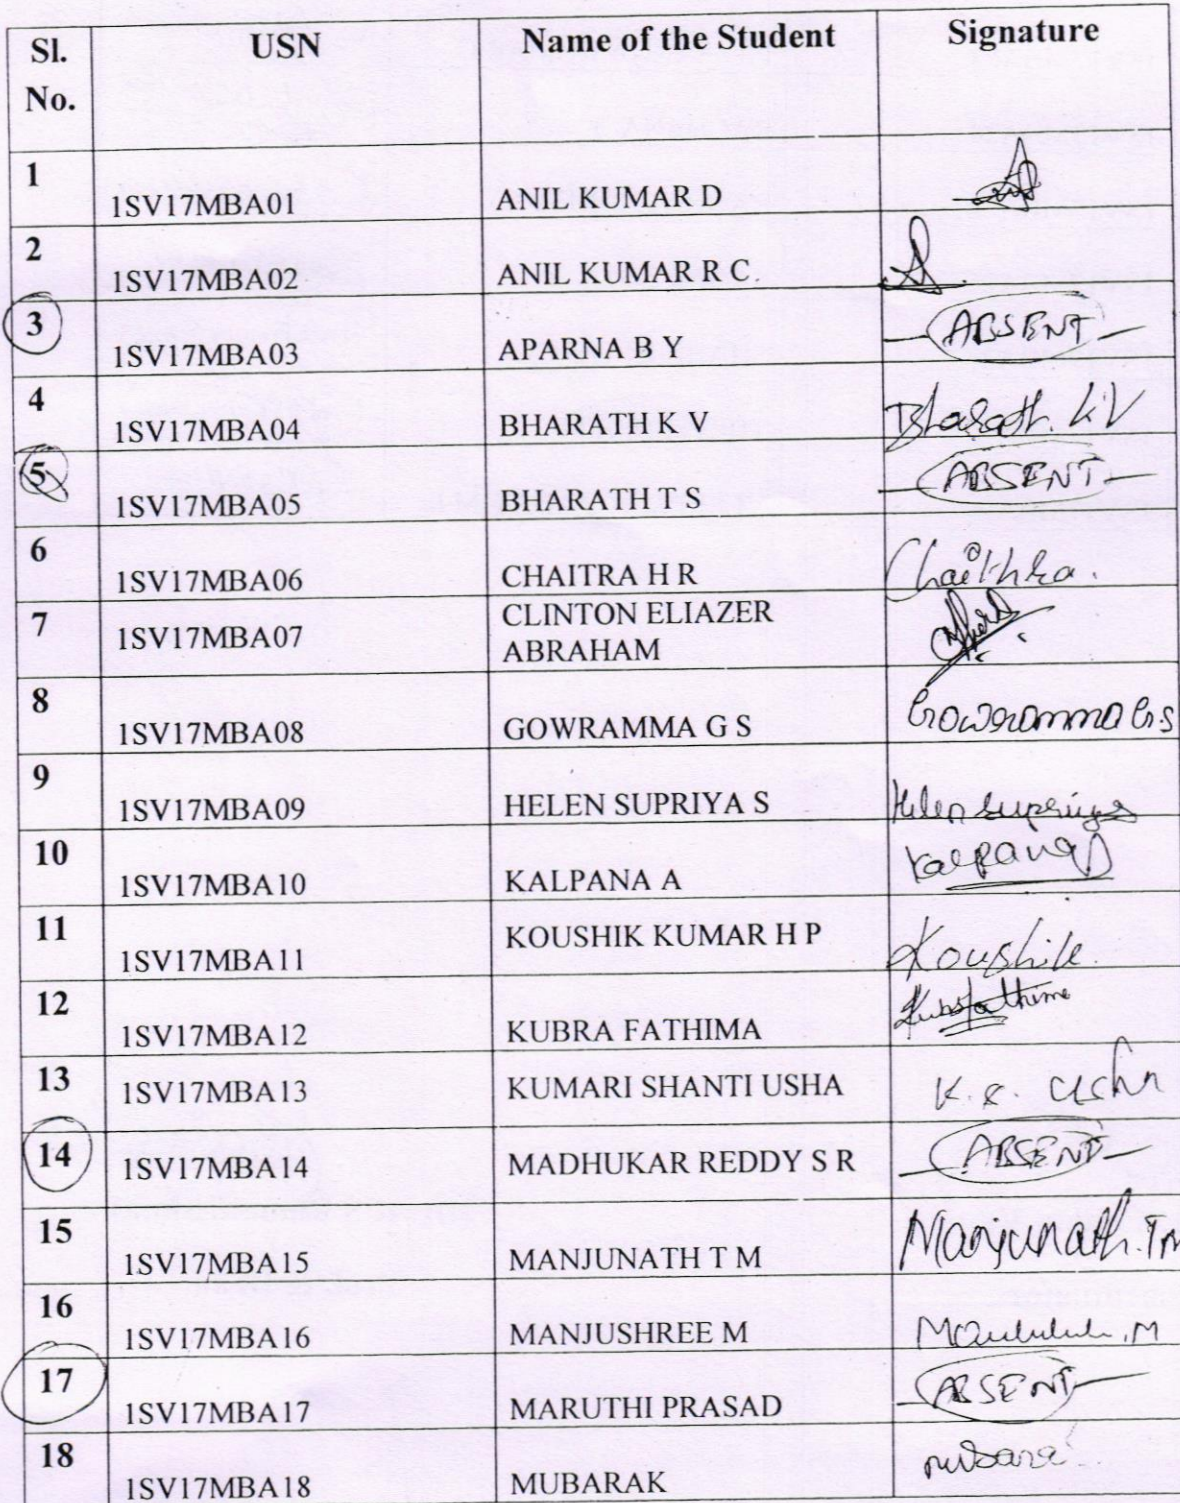 Sl. No. USN Name of the Student Signature
1 1SV17MBA01 ANIL KUMAR D
2 1SV17MBA02 ANIL KUMAR R C.
3 1SV17MBA03 APARNA B Y ABSENT
4 1SV17MBA04 BHARATH K V Bharath. K V
5 1SV17MBA05 BHARATH T S ABSENT
6 1SV17MBA06 CHAITRA H R Chaithra.
7 1SV17MBA07 CLINTON ELIAZER
ABRAHAM
8 1SV17MBA08 GOWRAMMA G S Gowramma G.S
9 1SV17MBA09 HELEN SUPRIYA S Helen Supriya
10 1SV17MBA10 KALPANA A Kalpana
11 1SV17MBA11 KOUSHIK KUMAR H P Koushik
12 1SV17MBA12 KUBRA FATHIMA Kubra fathima
13 1SV17MBA13 KUMARI SHANTI USHA K.S. Usha
14 1SV17MBA14 MADHUKAR REDDY S R ABSENT
15 1SV17MBA15 MANJUNATH T M Manjunath.Tm
16 1SV17MBA16 MANJUSHREE M
17 1SV17MBA17 MARUTHI PRASAD ABSENT
18 1SV17MBA18 MUBARAK